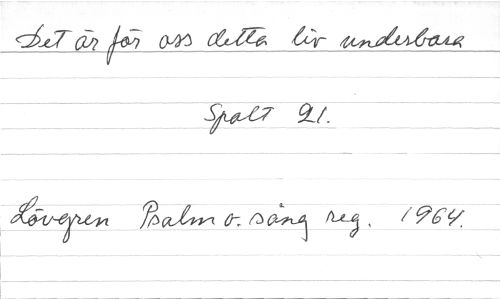 Det är för oss detta liv underbara
Spalt 21.
Lövgren Psalm o. sång reg. 1964.